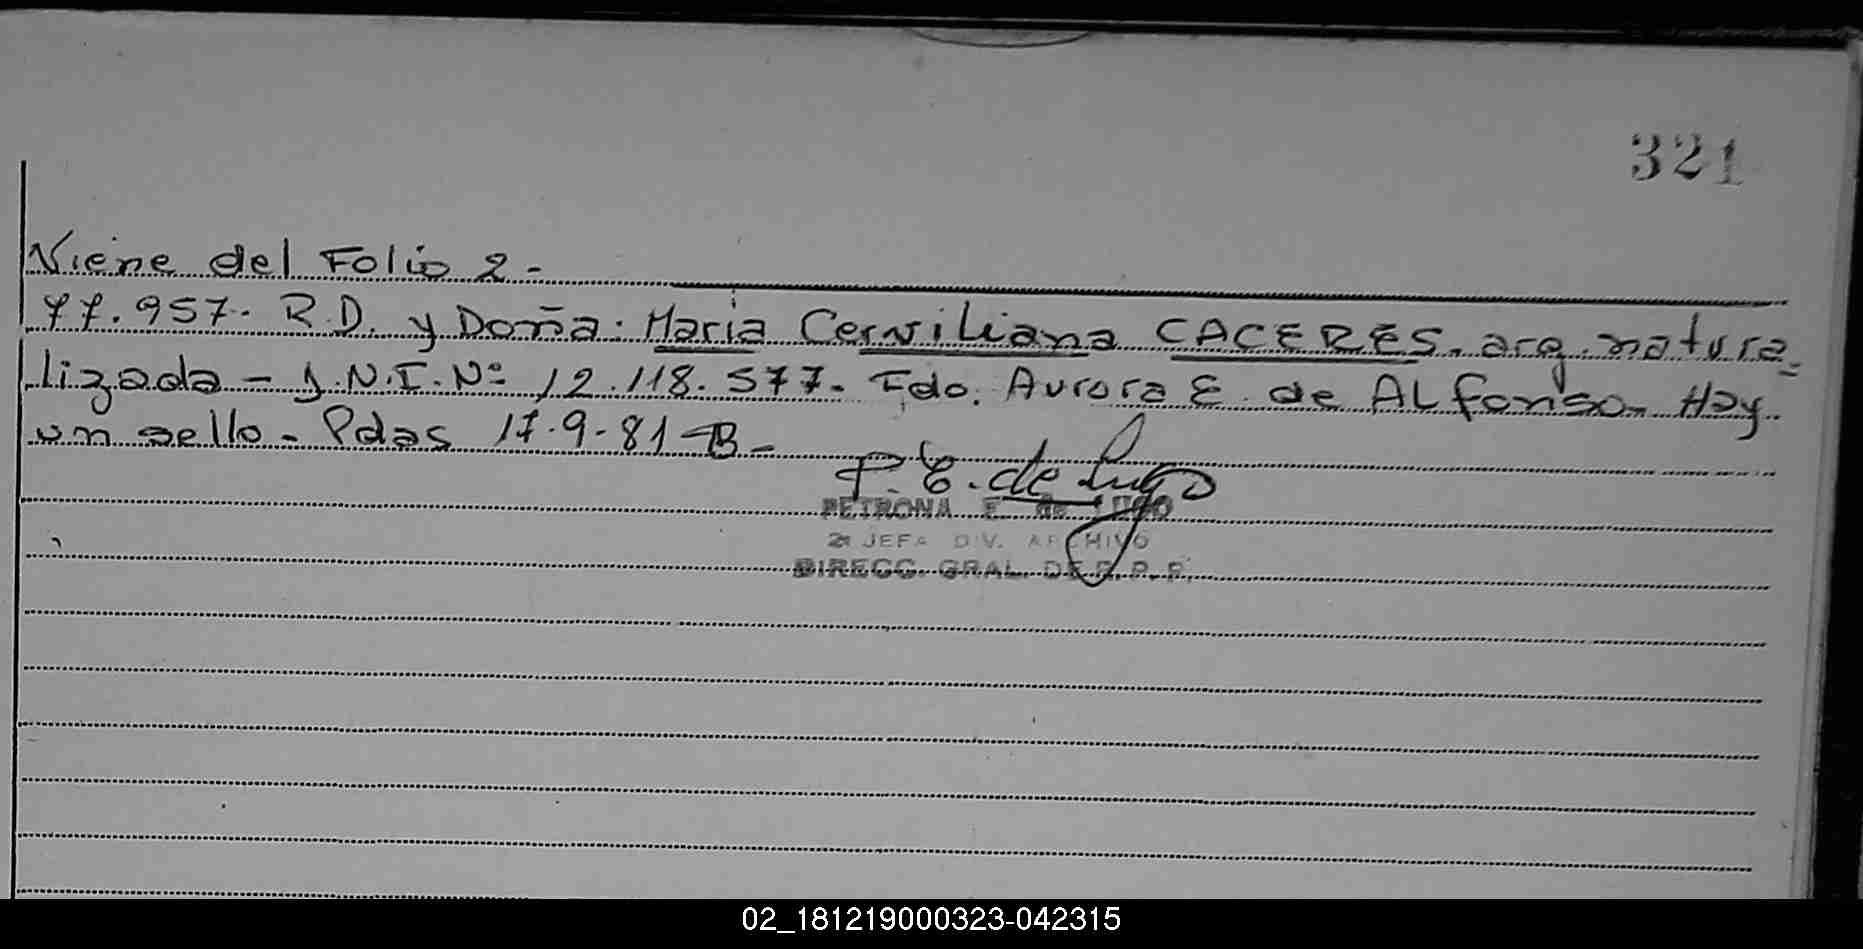 321
Viene del Folio 2.-
77.957.- R.D. y Doña: Maria Cerviliana CACERES. arg. natura=
lizada - D.N.I. Nº 12.118.577. Fdo. Aurora E. de ALfonso. Hay
un sello. Pdas 17.9.81 B-
P. E. de Lugo
PETRONA E. de LUGO
2º JEFA DIV. ARCHIVO
DIRECC. GRAL. DE R. P. P.
02_181219000323-042315